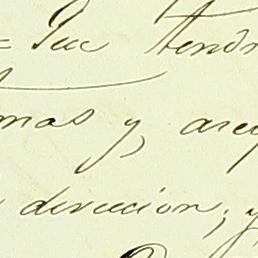 = Que tendr
mas y, aseq
direccion; y